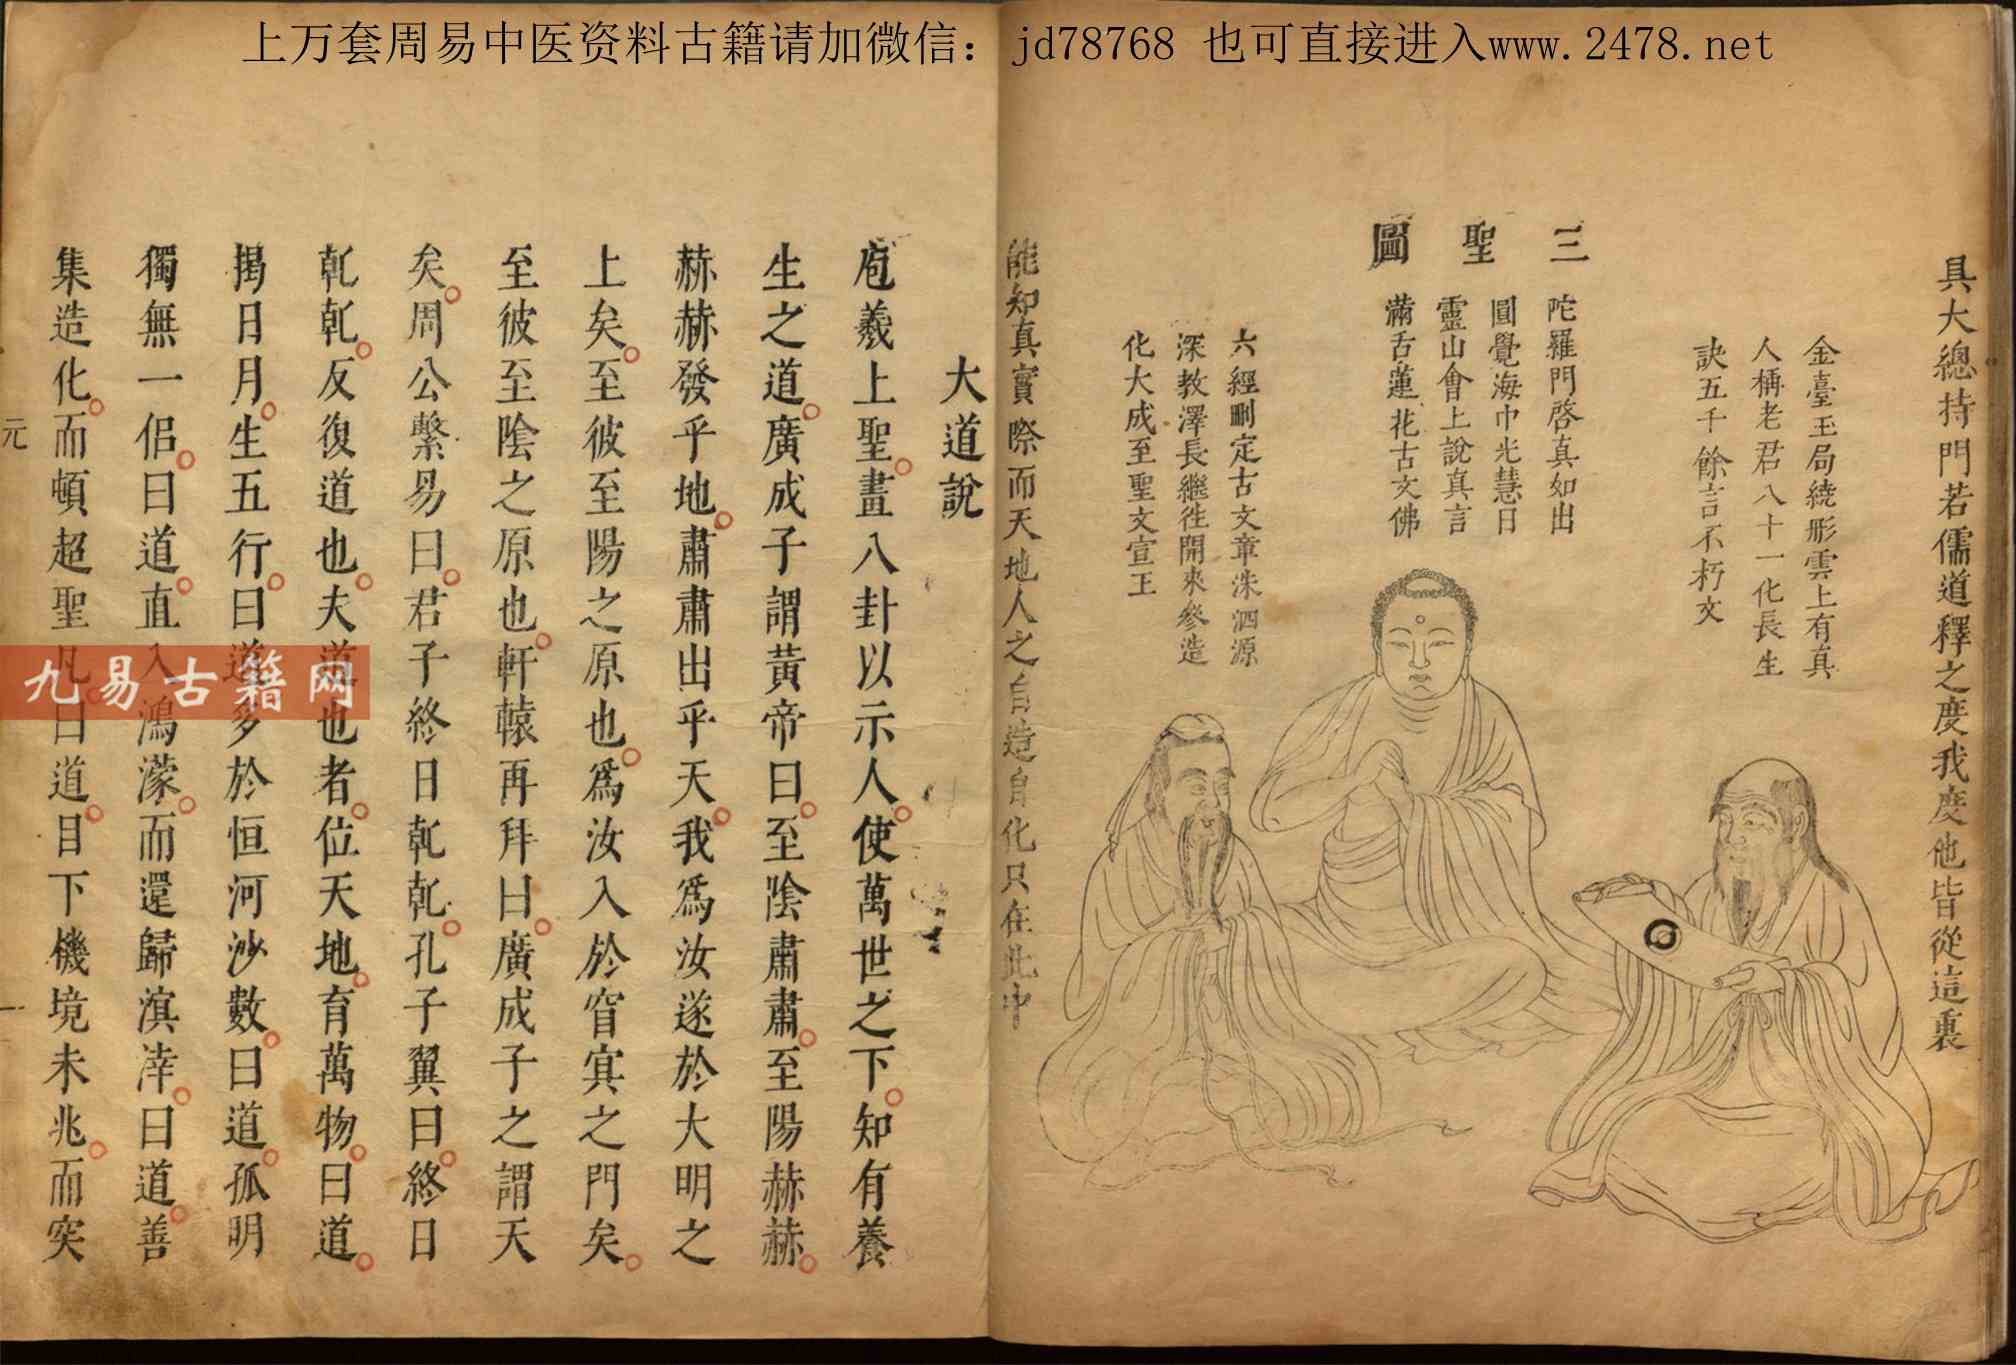 上万套周易中医资料古籍请加微信：jd78768 也可直接进入www.2478.net
具大總持門若儒道釋之度我度他皆從這裏
金臺玉局繞彤雲上有真
人稱老君八十一化長生
訣五千餘言不朽文
三聖圖
陀羅門啓真如出
圓覺海巾光慧日
靈山會上說真言
滿舌蓮花古文佛
六經刪定古文章洙泗源
深教澤長繼徃開來參造
化大成至聖文宣王
能知真實際而天地人之自造自化只在此中
大道說
庖羲上聖畫八卦以示人使萬世之下知有養
生之道廣成子謂黃帝曰至陰肅肅至陽赫赫
赫赫發乎地肅肅出乎天我爲汝遂於大明之
上矣至彼至陽之原也爲汝入於窅冥之門矣
至彼至陰之原也軒轅再拜曰廣成子之謂天
矣周公繫易曰君子終日乾乾孔子翼曰終日
乾乾反復道也夫道也者位天地育萬物曰道
揭日月生五行曰道多於恒河沙數曰道孤明
獨無一侶曰道直入鴻濛而還歸溟涬曰道善
集造化而頓超聖凡曰道目下機境未兆而突
元
一
九易古籍网